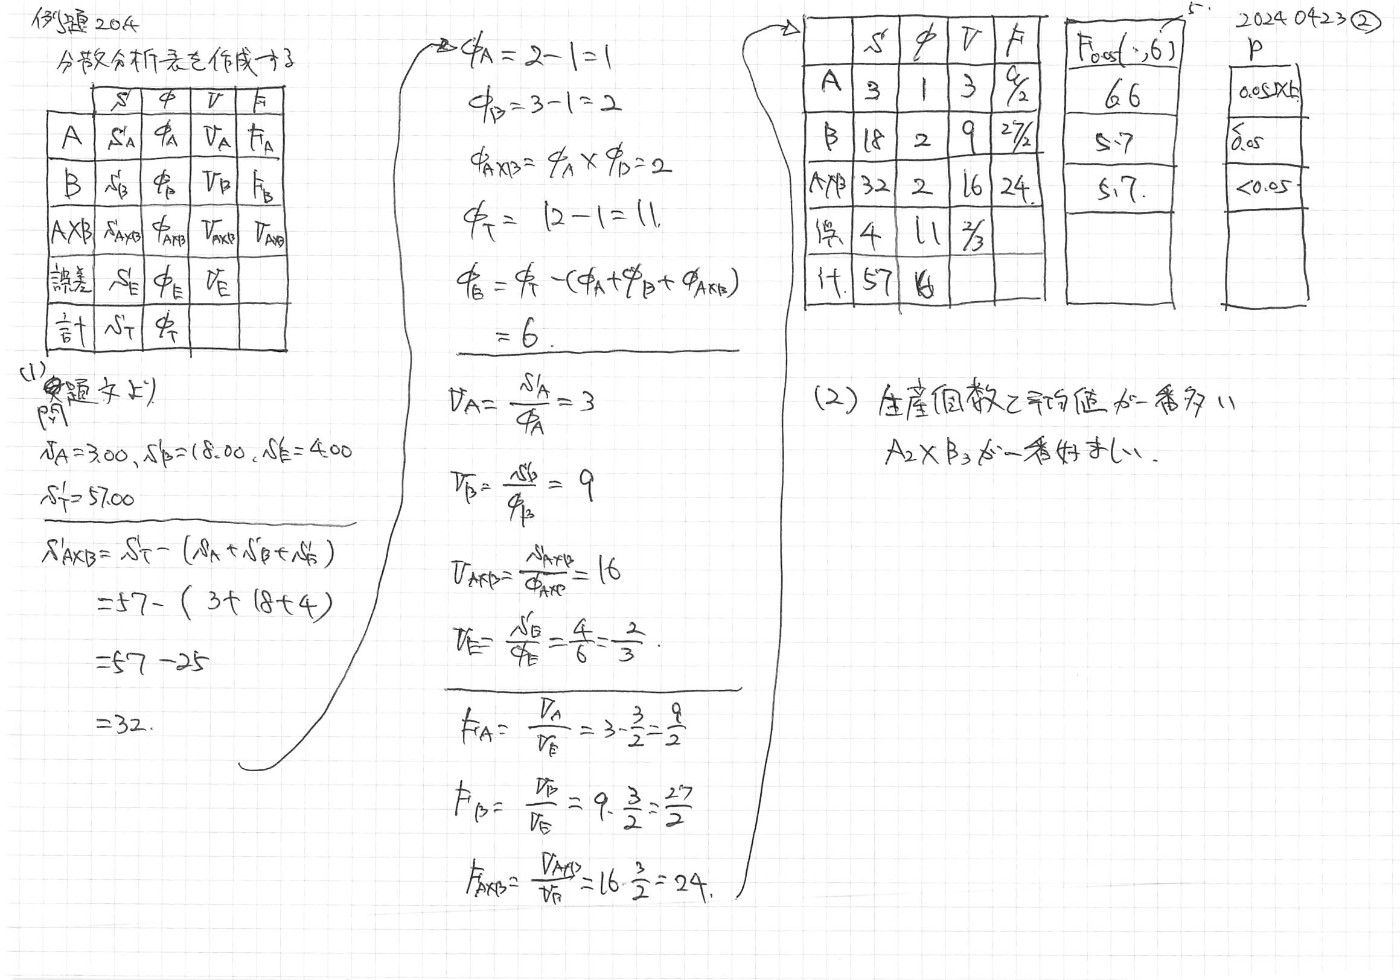 例題20.4
分散分析表を作成する
S φ V F
A S_A φ_A V_A F_A
B S_B φ_B V_B F_B
A×B S_A×B φ_A×B V_A×B V_A×B
誤差 S_E φ_E V_E
計 S_T φ_T
(1) 問題文より
S_A=3.00、S_B=18.00、S_E=4.00
S_T=57.00
S_A×B=S_T-(S_A+S_B+S_E)
=57-(3+18+4)
=57-25
=32.
φ_A=2-1=1
φ_B=3-1=2
φ_A×B=φ_A×φ_B=2
φ_T=12-1=11.
φ_E=φ_T-(φ_A+φ_B+φ_A×B)
=6.
V_A=S_A/φ_A=3
V_B=S_B/φ_B=9
V_A×B=S_A×B/φ_A×B=16
V_E=S_E/φ_E=4/6=2/3.
F_A=V_A/V_E=3・3/2=9/2
F_B=V_B/V_E=9・3/2=27/2
F_A×B=V_A×B/V_E=16・3/2=24.
20240423②
S φ V F F0.05(・,6) P
A 3 1 3 9/2 6.6
B 18 2 9 27/2 5.7 <0.05
A×B 32 2 16 24. 5.7. <0.05
誤 4 11 2/3
計. 57
(2) 生産個数の平均値が一番多い
A2×B3が一番好ましい.